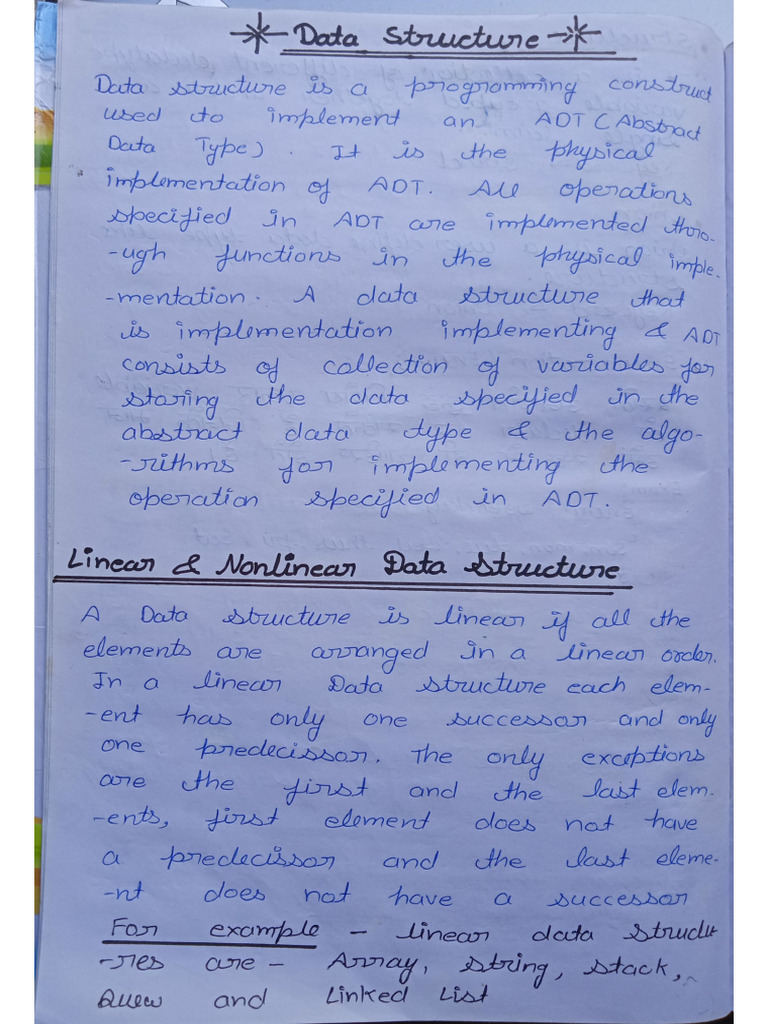 Data Structure
Data structure is a programming construct
used to implement an ADT (Abstract
Data Type). It is the physical
implementation of ADT. All operations
specified in ADT are implemented thro-
-ugh functions in the physical imple-
-mentation. A data structure that
is implementation implementing & ADT
consists of collection of variables for
staring the data specified in the
abstract data type & the algo-
-rithms for implementing the
operation specified in ADT.
Linear & Nonlinear Data Structure
A Data structure is linear if all the
elements are arranged in a linear order.
In a linear Data structure each elem-
-ent has only one successor and only
one predecissor. The only exceptions
are the first and the last elem-
-ents, first element does not have
a predecissor and the last eleme-
-nt does not have a successor
For example - linear data structu
-res are - Array, string, stack,
Queu and Linked List